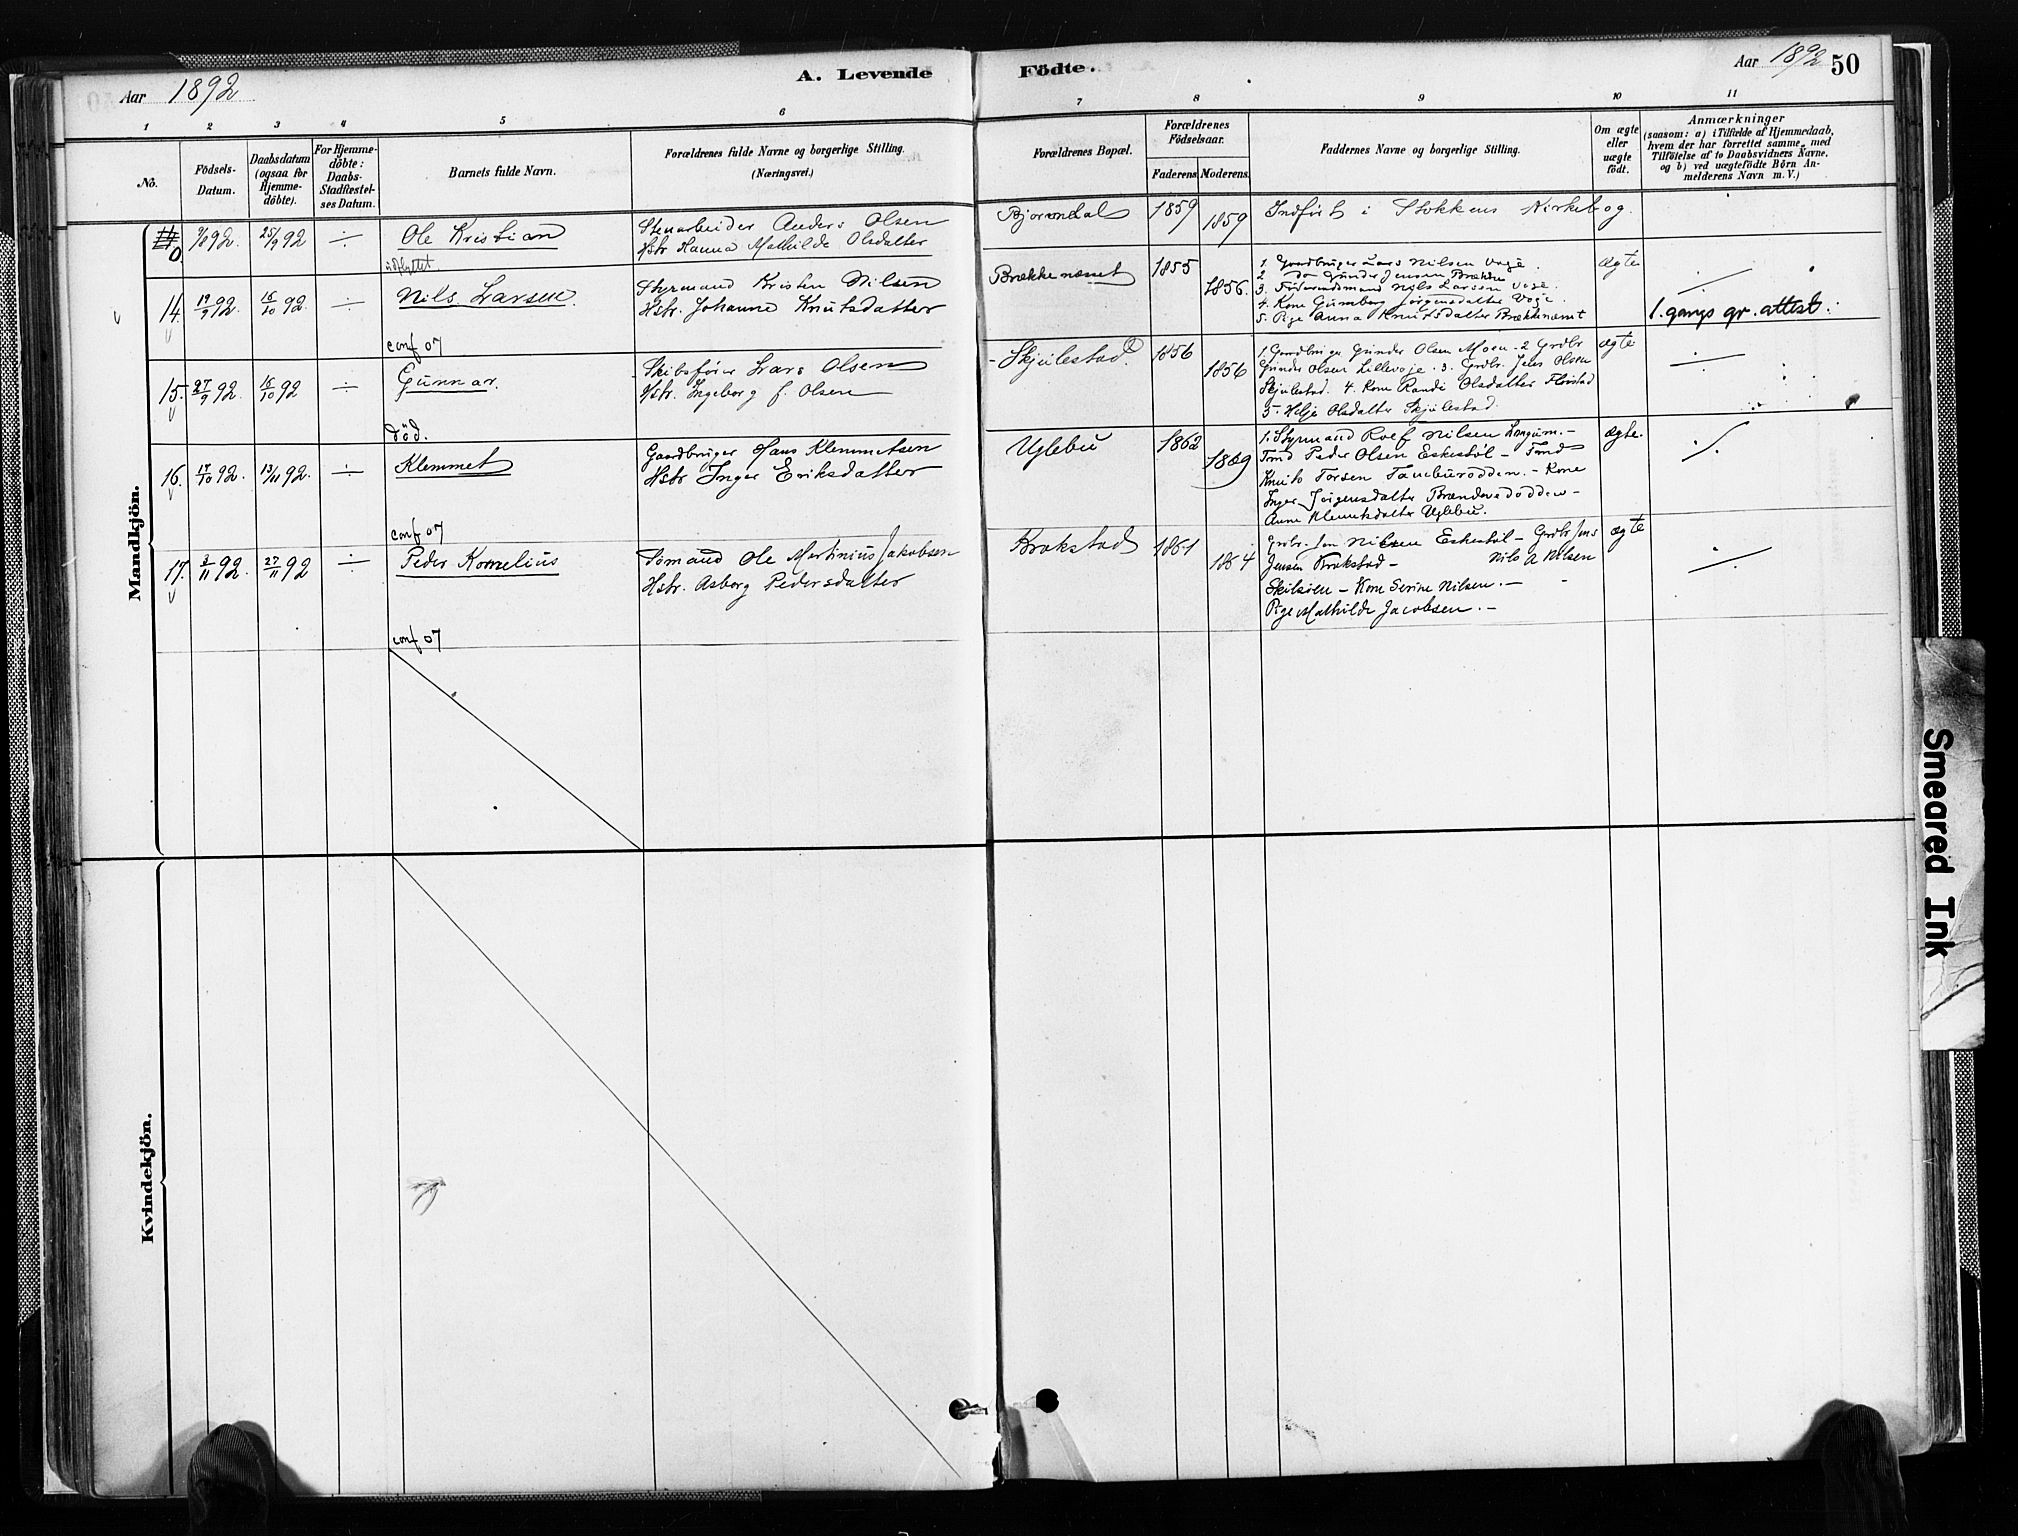 Aar 1892
A. Levende
Födte.
Aar 1892
50
1
2
3
4
5
6
7
8
9
10
11
No.
Födsels-
Datum.
Daabsdatum
(ogsaa for
Hjemme-
döbte).
For Hjemme-
döbte:
Daabs-
Stadfæstel-
ses Datum.
Barnets fulde Navn.
Forældrenes fulde Navne og borgerlige Stilling.
(Næringsvei.)
Forældrenes Bopæl.
Forældrenes
Födselsaar.
Faderens.
Moderens.
Faddernes Navne og borgerlige Stilling.
Om ægte
eller
uægte
födt.
Anmærkninger
(saasom: a) i Tilfælde af Hjemmedaab,
hvem der har forrettet samme, med
Tilföielse af to Daabsvidners Navne,
og b) ved uægtefödte Börn An-
melderens Navn m. V.)
Mandkjön.
0
9/8 92.
25/9 92
Ole Kristian
Stenarbeider Anders Olsen
Hstr Hanna Mathilde Olsdatter
Bjorendal
1859
1859
Indført i Stokkens Kirkebog.
udflyttet.
14.
19/9 92.
16/10 92.
Nils Larsen.
conf 07
Styrmand Kristen Nilsen
Hstr. Johanne Knutsdatter
Brækkenæset
1855
1856.
1. Gaardbruger Lars Nilsen Voje.
2 do Gunder Jensen Brække
3. Føderaadsmand Nils Larsen Voje.
4. Kone Gumborg Jørgensdatter Voje.
5. Pige Anna Knutsdatter Brækkenæset
ægte
1. gangs gr. attest.
15.
27/9 92.
16/10 92
Gunnar.
død.
Skibsfører Lars Olsen
Hstr. Ingeborg f. Olsen
Skjulestad
1856
1856
1. Gaardbruger Gunder Olsen Moen - 2 Grdbr
Gunder Olsen Lillevoje. 3. Grdbr. Jens Olsen
Skjulestad. 4. Kone Randi Olsdatter Flovstad
5. Helje Olsdatter Skjulestad.
ægte
16.
17/10 92.
13/11 92.
Klemmet
conf 07
Gaardbruger Hans Klemmetsen
Hstr Inger Eriksdatter
Uglebu
1862
1869
1. Styrmand Rolf Nilsen Longum.-
Tmd Peder Olsen Eskestøl - Tmd
Knut Torsen Tamburodden. - Kone
Inger Jørgensdatter Brændevedodden -
Anne Klemetsdatter Uglebu.
ægte.
17.
3/11 92.
27/11 92
Peder Kornelius
conf 07
Sømand Ole Martinius Jakobsen
Hstr. Asborg Pedersdatter
Brokstad
1861
1864
Grdbr. Jon Nilsen Eskestøl - Grdbr Jens
Jensen Brokstad - Nils A Nilsen
Skilsøen - Kone Serine Nilsen. -
Pige Mathilde Jacobsen. -
ægte
Kvindekjön.
Smeared Ink